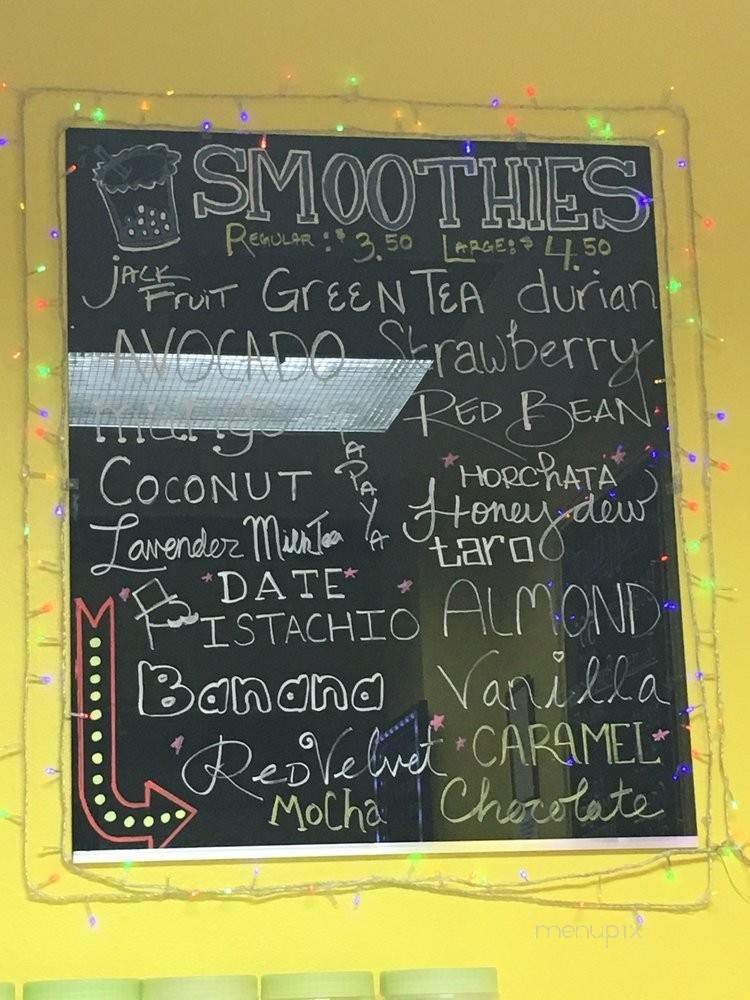 SMOOTHIES
REGULAR: $3.50 LARGE: $4.50
JACK FRUIT GREEN TEA durian
AVOCADO Strawberry
mango PAPAYA RED BEAN
COCONUT HORCHATA
Honeydew
Lavender Milk Tea taro
DATE
PISTACHIO ALMOND
Banana Vanilla
RED Velvet CARAMEL
MoCha Chocolate
menupix